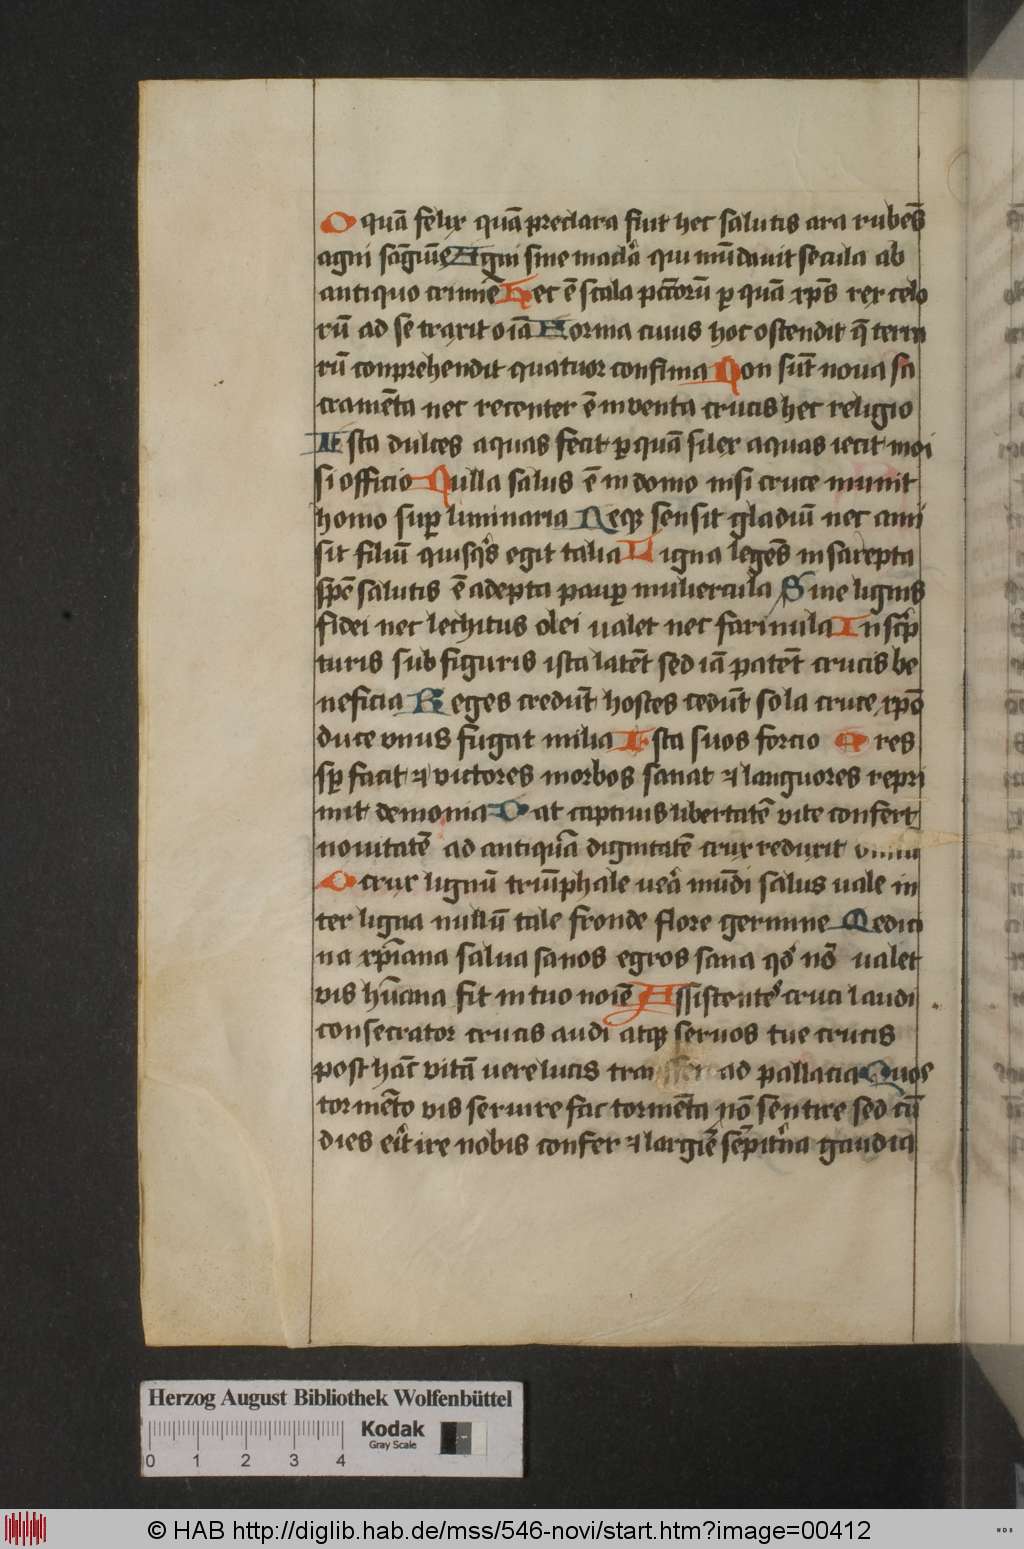 O quā felix quā preclara fuit hec salutis ara rubēs
agni sāguīe Agni sine macla qui mūdauit secula ab
antiquo crimīe Hec ē scala pctorū p quā xps rex celo
rū ad se traxit oīa Forma cuius hoc ostendit q̄ terra
rū conprehendit quatuor confinia Non sūt noua sa
cramēta nec recenter ē inventa crucis hec religio
Ista dulces aquas fecit p quā silex aquas iecit moi
si officio Nulla salus ē in domo nisi cruce munit
homo sup liminaria Neqz sensit gladiū nec ami
sit filiū quisqs egit talia Ligna legēs in sarepta
spē salutis ē adepta paup muliercula Sine lignis
fidei nec lechitus olei ualet nec farinula In scrip
turis sub figuris ista latēt sed iā patēt crucis be
neficia Reges credūt hostes cedūt sola cruce xpo
duce vnus fugat milia Ista suos forcio res
sp facit ⁊ victores morbos sanat ⁊ languores repri
mit demonia Dat captiuis libertatē vite confert
nouitatē ad antiquā dignitatē crux reduxit omnia
O crux lignū triūphale uea mūdi salus uale in
ter ligna nullū tale fronde flore germine Medici
na xpiana salua sanos egros sana qd nō ualet
vis hūana fit in tuo noīe Assistentes cruci laudi
consecrator crucis audi atqz seruos tue crucis
post hāc vitā uere lucis ad pallacia Quos
tormēto vis seruire fac tormēta nō sentire sed cū
dies erit ire nobis confer ⁊ largire sēpitna gaudia
Herzog August Bibliothek Wolfenbüttel
Kodak
Gray Scale
0 1 2 3 4
© HAB http://diglib.hab.de/mss/546-novi/start.htm?image=00412